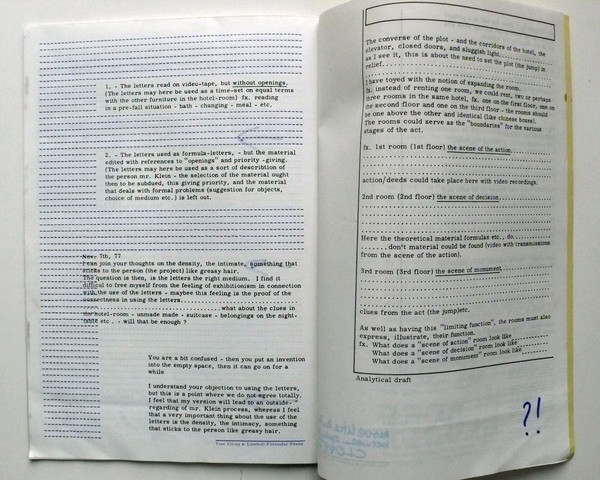 1. - The letters read on video-tape, but without openings.
(The letters may here be used as a time-set on equal terms
with the other furniture in the hotel-room) fx. reading
in a pre-fall situation - bath - changing - meal - etc.
2. - The letters used as formula-letters, - but the material
edited with references to "openings" and priority -giving.
(The letters may here be used as a sort of describtion of
the person mr. Klein - the selection of the material ought
then to be subdued, this giving priority, and the material
that deals with formal problems (suggestion for objects,
choice of medium etc.) is left out.
Nov. 7th, 77
I can join your thoughts on the density, the intimate, something that
sticks to the person (the project) like greasy hair.
The question is then, is the letters the right medium. I find it
difficult to free myself from the feeling of exhibitionism in connection
with the use of the letters - maybe this feeling is the proof of the
correctness in using the letters..........
what about the clues in
the hotel-room - unmade made - suitcase - belongings on the night-
table etc. - will that be enough ?
You are a bit confused - then you put an invention
into the empty space, then it can go on for a
while
I understand your objection to using the letters,
but this is a point where we do not agree totally.
I feel that my version will lead to an outside-
regarding of mr. Klein process, whereas I feel
that a very important thing about the use of the
letters is the density, the intimacy, something
that sticks to the person like greasy hair.
The converse of the plot - and the corridors of the hotel, the
elevator, closed doors, and sluggish light..........
as I see it, this is about the need to set the plot (the jump) in
relief..........
I have toyed with the notion of expanding the room..........
fx. instead of renting one room, we could rent, two or perhaps
three rooms in the same hotel, fx. one on the first floor, one on
the second floor and one on the third floor - the rooms should
be one above the other and identical (like chinese boxes).
The rooms could serve as the "boundaries" for the various
stages of the act.
fx. 1st room (1st floor) the scene of the action..........
action/deeds could take place here with video recordings.
2nd room (2nd floor) the scene of decision..........
Here the theoretical material formulas etc., do..........
..........don't material could be found (video with transmissions
from the scene of the action).
3rd room (3rd floor) the scene of monument..........
clues from the act (the jump)etc.
As well as having this "limiting function", the rooms must also
express, illustrate, their function.
fx. What does a "scene of action" room look like..........
What does a "scene of decision" room look like..........
What does a "scene of monument" room look like..........
Analytical draft
?!